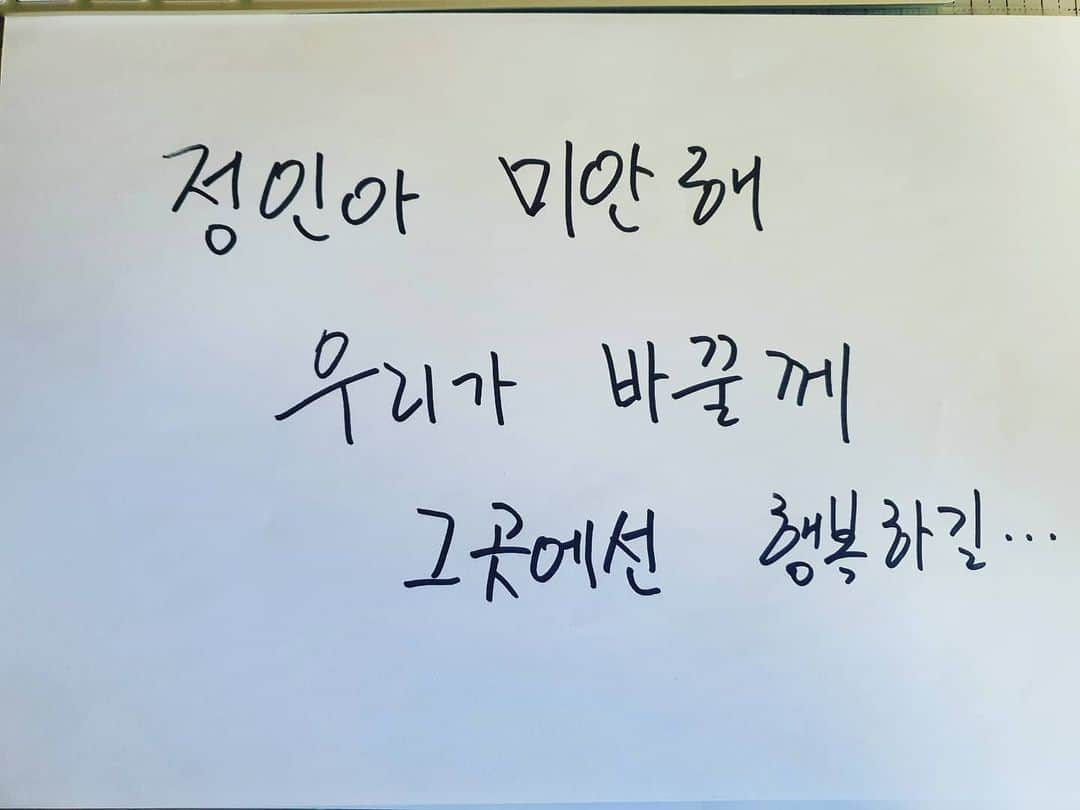 정인아 미안해
우리가 바꿀께
그곳에선 행복하길...